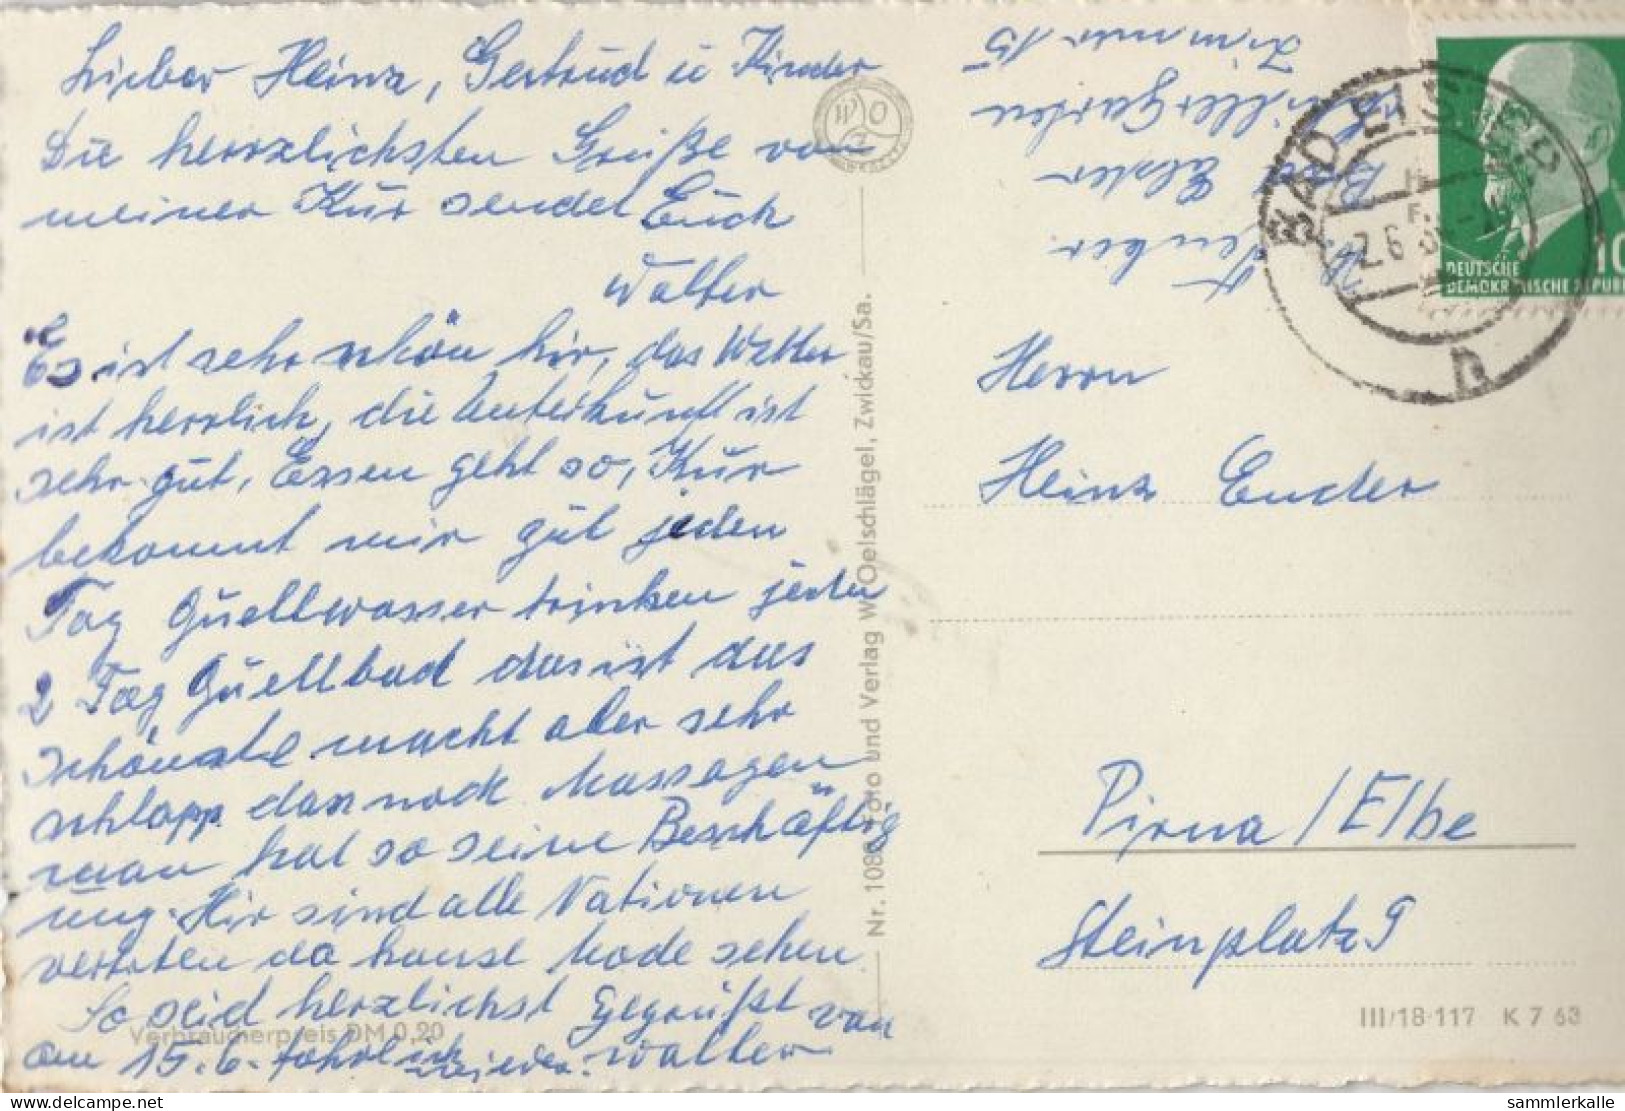 Lieber Heinz, Gertrud u Kinder
Die herrzlichsten Grüße von
meiner Kur sendet Euch
Walter
Es ist sehr schön hir, das Wetter
ist herrlich, die Unterkunft ist
sehr gut, Essen geht so, Kur
bekommt mir gut jeden
Tag Quellwasser trinken jeden
2 Tag Quellbad das ist das
schönste macht aber sehr
schlapp dan noch Massagen
man hat so seine Beschäftig
ung. Hir sind alle Nationen
vertreten da kanst Mode sehen
So seid herzlichst Gegrüßt von
am 15.6. fahr ich wieder. Walter
Verbraucherpreis DM 0,20
Nr. 1080 Foto und Verlag W. Oelschlägel, Zwickau/Sa.
W O Z
Bad Elster
Zimmer 15
BAD ELSTER
2.6.
h
DEUTSCHE
DEMOKRATISCHE REPUBLIK
10
Herrn
Heinz Ender
Pirna/Elbe
Steinplatz 9
III/18·117 K 7 63
delcampe.net
sammlerkalle